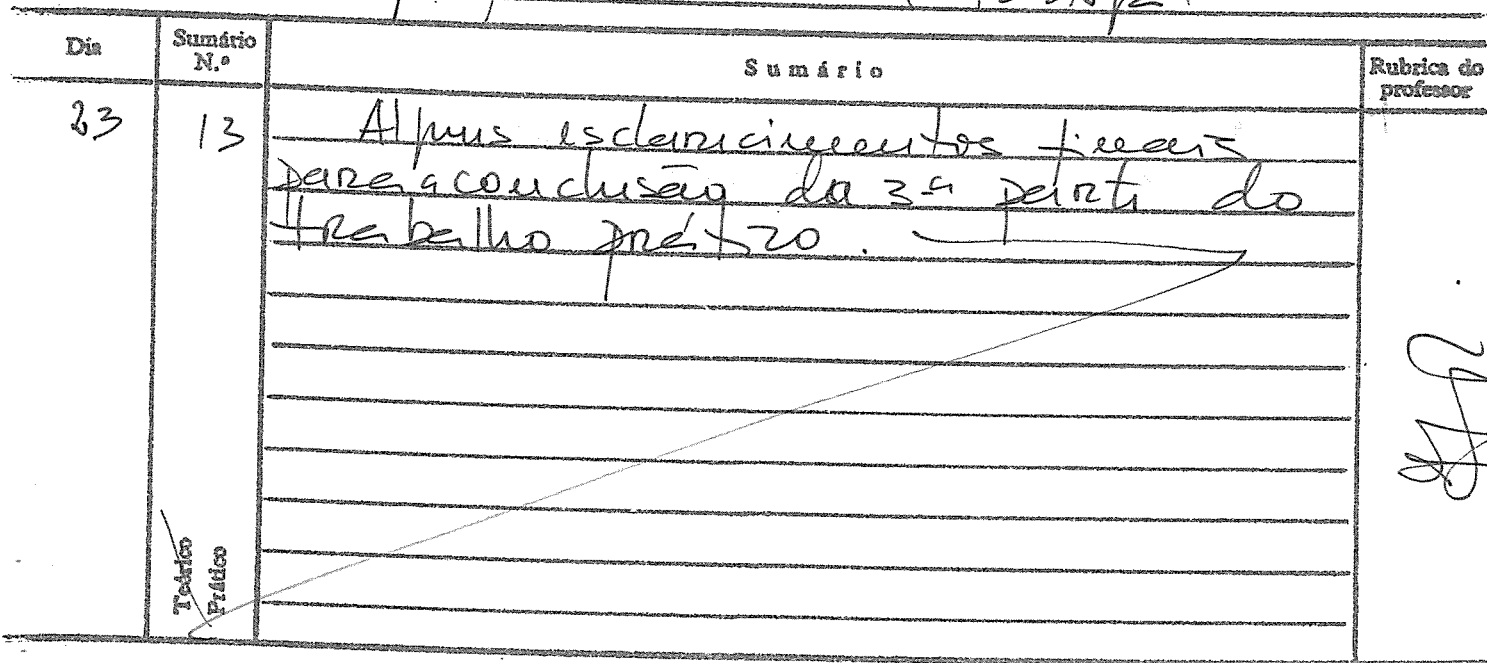 Dia
Sumário N.º
Sumário
Rubrica do professor
23
13
Alguns esclarecimentos finais
para a conclusão da 3ª parte do
trabalho prático.
Teórico
Prático